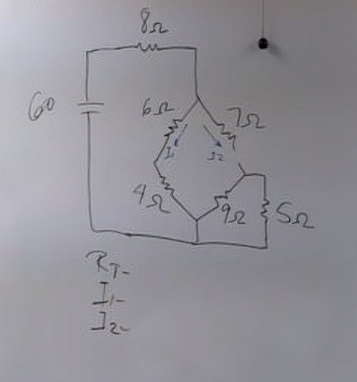 8Ω
60
6Ω
7Ω
I1
4Ω
9Ω
5Ω
RT-
I1-
I2-